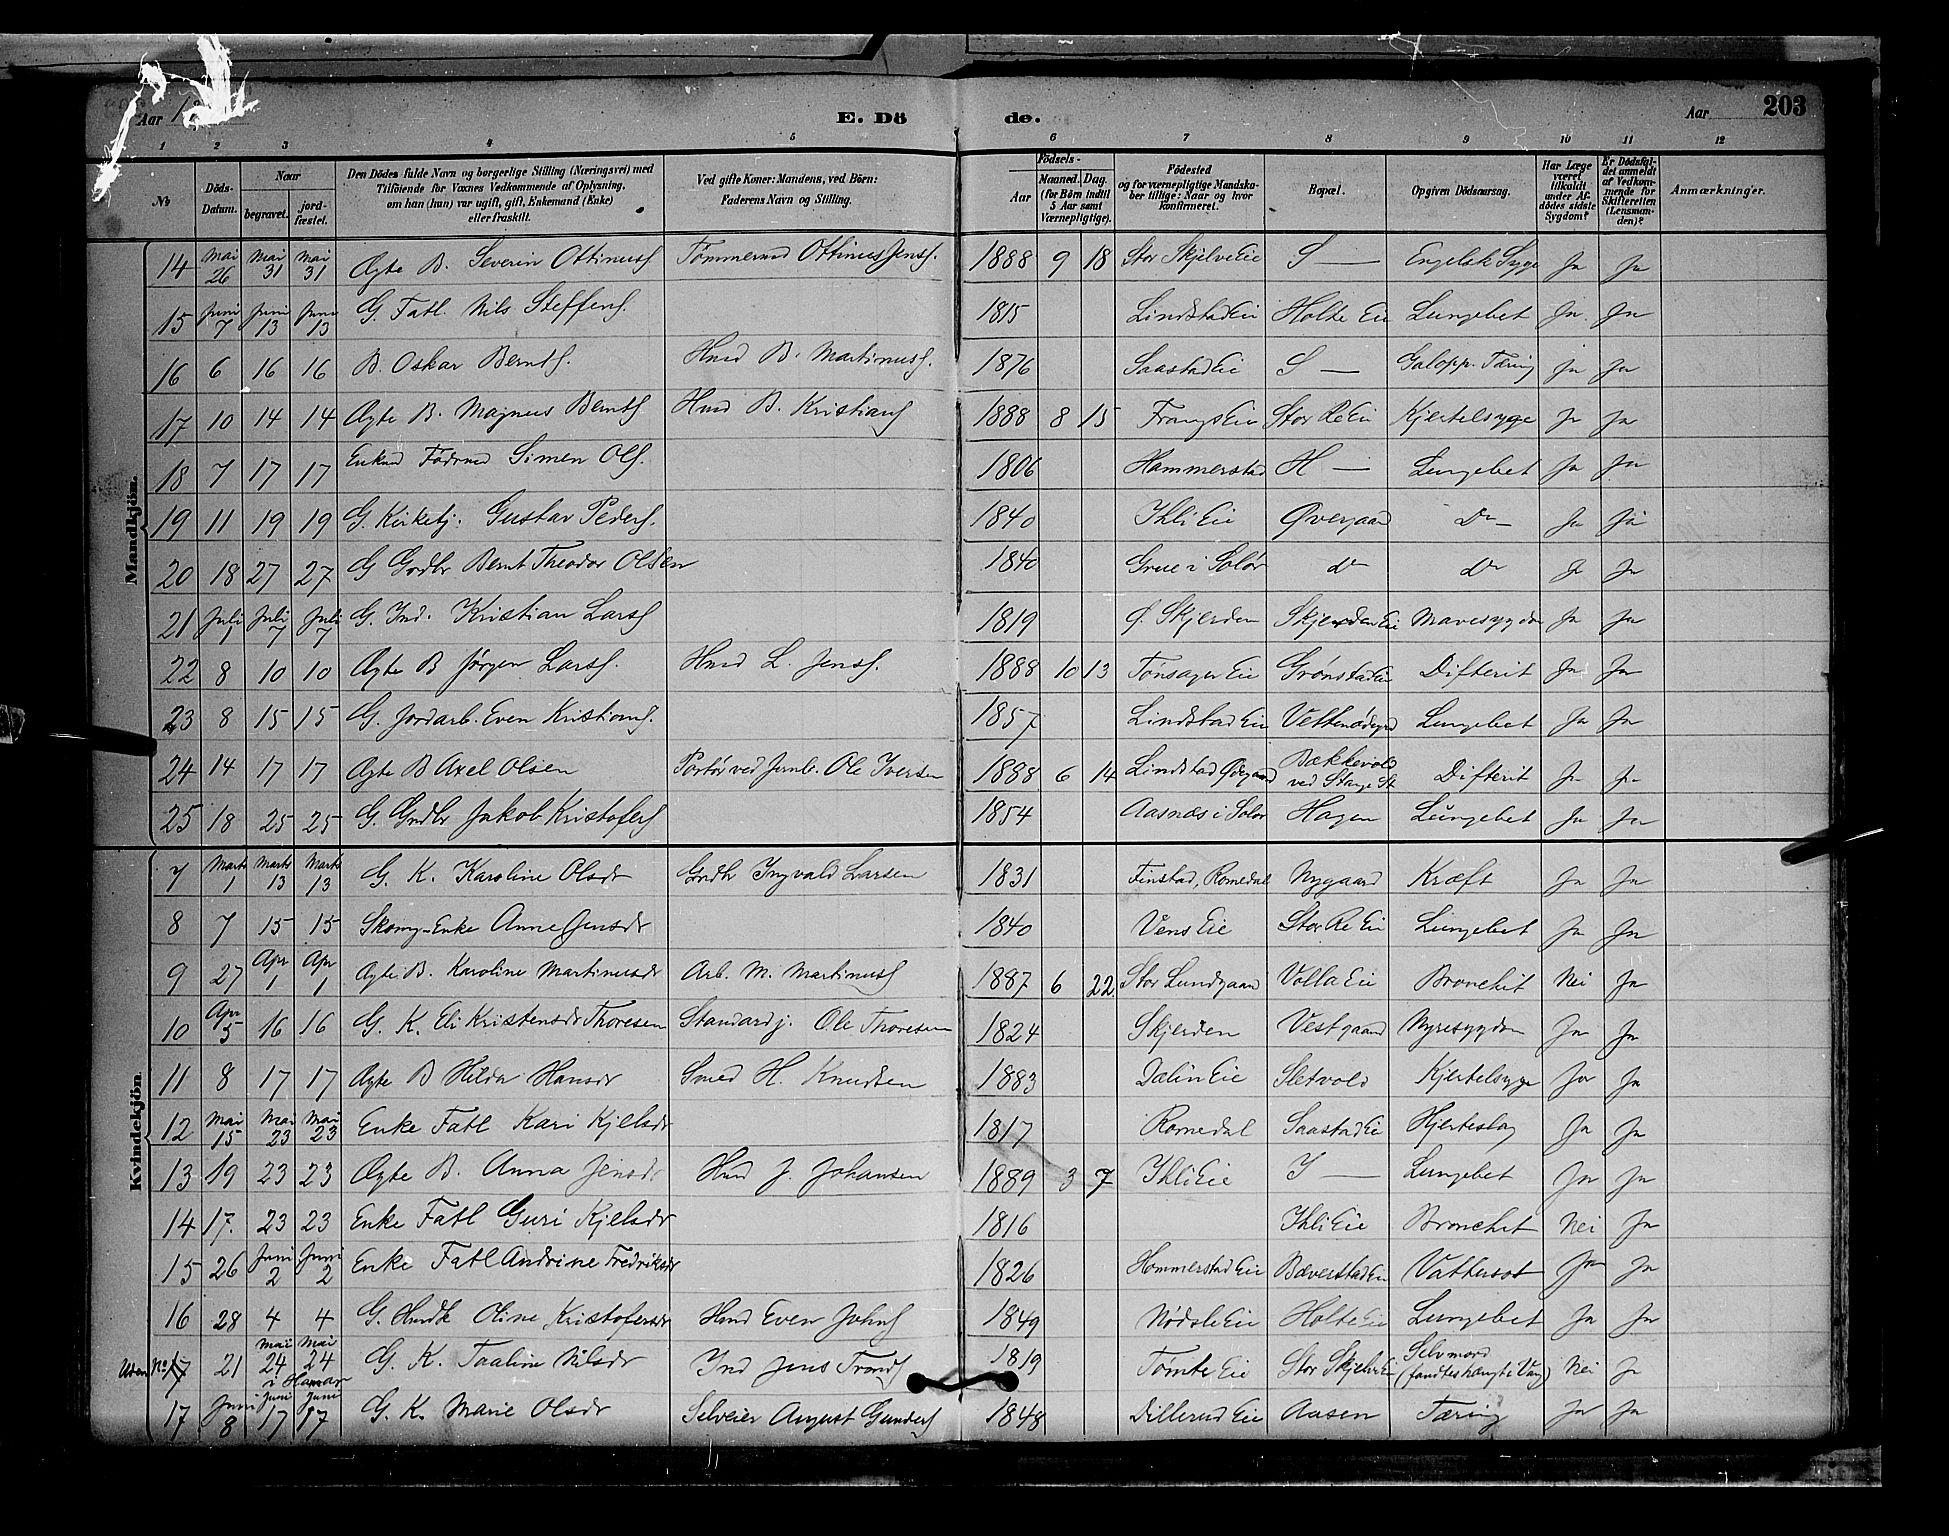 Aar 18
E. Dö
de.
Aar
203
1 2 3 4 5 6 7 8 9 10 11 12
№
Döds-Datum.
Naar
begravet.
jord-fæstet.
Den Dödes fulde Navn og borgerlige Stilling (Næringsvei) med
Tilföiende for Voxnes Vedkommende af Oplysning,
om han (hun) var ugift, gift, Enkemand (Enke)
eller fraskilt.
Ved gifte Koner: Mandens, ved Börn:
Faderens Navn og Stilling.
Födsels-
Aar
Maaned. Dag.
(for Börn indtil
5 Aar samt
Værnepligtige).
Födested
og for værnepligtige Mandska-
ber tillige: Naar og hvor
konfirmeret.
Bopæl.
Opgiven Dödsaarsag.
Har Læge
været
tilkaldt
under Af-
dödes sidste
Sygdom?
Er Dödsfal-
det anmeldt
af Vedkom-
mende for
Skifteretten
(Lensman-
den)?
Anmærkninger.
Mandkjön.
14 Mai 26 Mai 31 Mai 31 Ægte B. Severin Ottinuss. Tömmermd Ottinus Jenss. 1888 9 18 Stor Skjelve Eie S — Engelsk Syge Ja Ja
15 Juni 7 Juni 13 Juni 13 G. Fatl. Nils Steffens. 1815 Lindstad Eie Holte Eie Lungebet Ja Ja
16 6 16 16 B. Oskar Bernts. Hmd B. Martinuss. 1876 Saastad Eie S — Galopp. Tæring Ja Ja
17 10 14 14 Ægte B. Magnus Bernts. Hmd B. Kristians. 1888 8 15 Frangs Eie Stor Re Eie Kjertelsyge Ja Ja
18 7 17 17 Enkmd Födrmd Simen Ols. 1806 Hammerstad H — Lungebet Ja Ja
19 11 19 19 G. Kirketj. Gustav Peders. 1840 Ihli Eie Øvergaard Do Ja Ja
20 18 27 27 G Grdbr Bernt Theodor Olsen 1840 Grue i Solør do do Ja Ja
21 Juli 1 Juli 7 Juli 7 G. Ind. Kristian Lars. 1819 Ø. Skjerden Skjerden Eie Mavesygdom Ja Ja
22 8 10 10 Ægte B Jørgen Larss. Hmd L. Jenss. 1888 10 13 Tönsager Eie Grönstad Eie Difterit Ja Ja
23 8 15 15 G. Jordarb. Even Kristians. 1857 Lindstad Eie Lungebet Ja Ja
24 14 17 17 Ægte B Axel Olsen Portör ved Jernb. Ole Iversen 1888 6 14 Lindstad Ødegaard Bækkevold ved Stange St Difterit Ja Ja
25 18 25 25 G. Grdbr Jakob Kristofers. 1854 Aasnæs i Solør Hagen Lungebet Ja Ja
Kvindekjön.
7 Marts 1 Marts 13 Marts 13 G. K. Karoline Olsdr Grdbr Ingvald Larsen 1831 Finstad, Romedal Nygaard Kræft Ja Ja
8 7 15 15 Skomg. Enke Anne Jensdr 1840 Vens Eie Stor Re Eie Lungebet Ja Ja
9 27 Apr 1 Apr 1 Ægte B. Karoline Martinusdr Arb. M. Martinuss. 1887 6 22 Stor Lundgaard Volla Eie Bronchit Nei Ja
10 Apr 5 16 16 G. K. Eli Kristensdr Thoresen Standardj. Ole Thoresen 1824 Skjerden Vestgaard Nyresygdom Ja Ja
11 8 17 17 Ægte B Hilda Hansdr Smed H. Knudsen 1883 Dalin Eie Sletvold Kjertelsyge Ja Ja
12 Mai 15 Mai 23 Mai 23 Enke Fatl Kari Kjelsdr 1817 Romedal Saastad Eie Hjerteslag Ja Ja
13 19 23 23 Ægte B. Anna Jensdr Hmd J. Johansen 1889 3 7 Ihli Eie I — Lungebet Ja Ja
14 17. 23 23 Enke Fatl Guri Kjelsdr 1816 Ihli Eie Bronchit Nei Ja
15 26 Juni 2 Juni 2 Enke Fatl Andrine Fredriksdr 1826 Hommerstad Eie Bæverstad Eie Vattersot Ja Ja
16 28 4 4 G. Hmdk Oline Kristofersdr Hmd Even Johns. 1849 Nødsle Eie Holte Eie Lungebet Ja Ja
Uden No 17 21 Mai 24 Mai 24 i Hamar G. K. Taaline Nilsdr Ind Jens Tronds. 1819 Tomte Eie Stor Skjelve Eie Selvmord (fandtes hængt i Vang) Nei Ja
17 Juni 8 Juni 17 Juni 17 G. K. Marie Olsdr Selveier August Gunders. 1848 Dillerud Eie Aasen Tæring Ja Ja